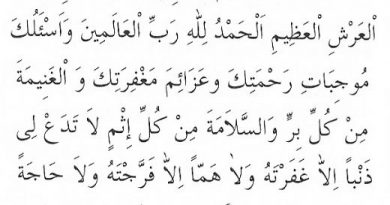 اْلعَرْشِ اْلعَظِيمِ اَلْحَمْدُ لِلّٰهِ رَبِّ اْلعَالَمِينَ وَاَسْئَلُكَ
مُوجِبَاتِ رَحْمَتِكَ وعَزَائِمَ مَغْفِرَتِكَ وَ اْلغَنِيمَةَ
مِنْ كُلِّ بِرٍّ وَالسَّلاَمَةَ مِنْ كُلِّ اِثْمٍ لاَ تَدَعْ لِى
ذَنْباً اِلاَّ غَفَرْتَهُ وَلاَ هَمّاً اِلاَّ فَرَّجْتَهُ وَلاَ حَاجَةً